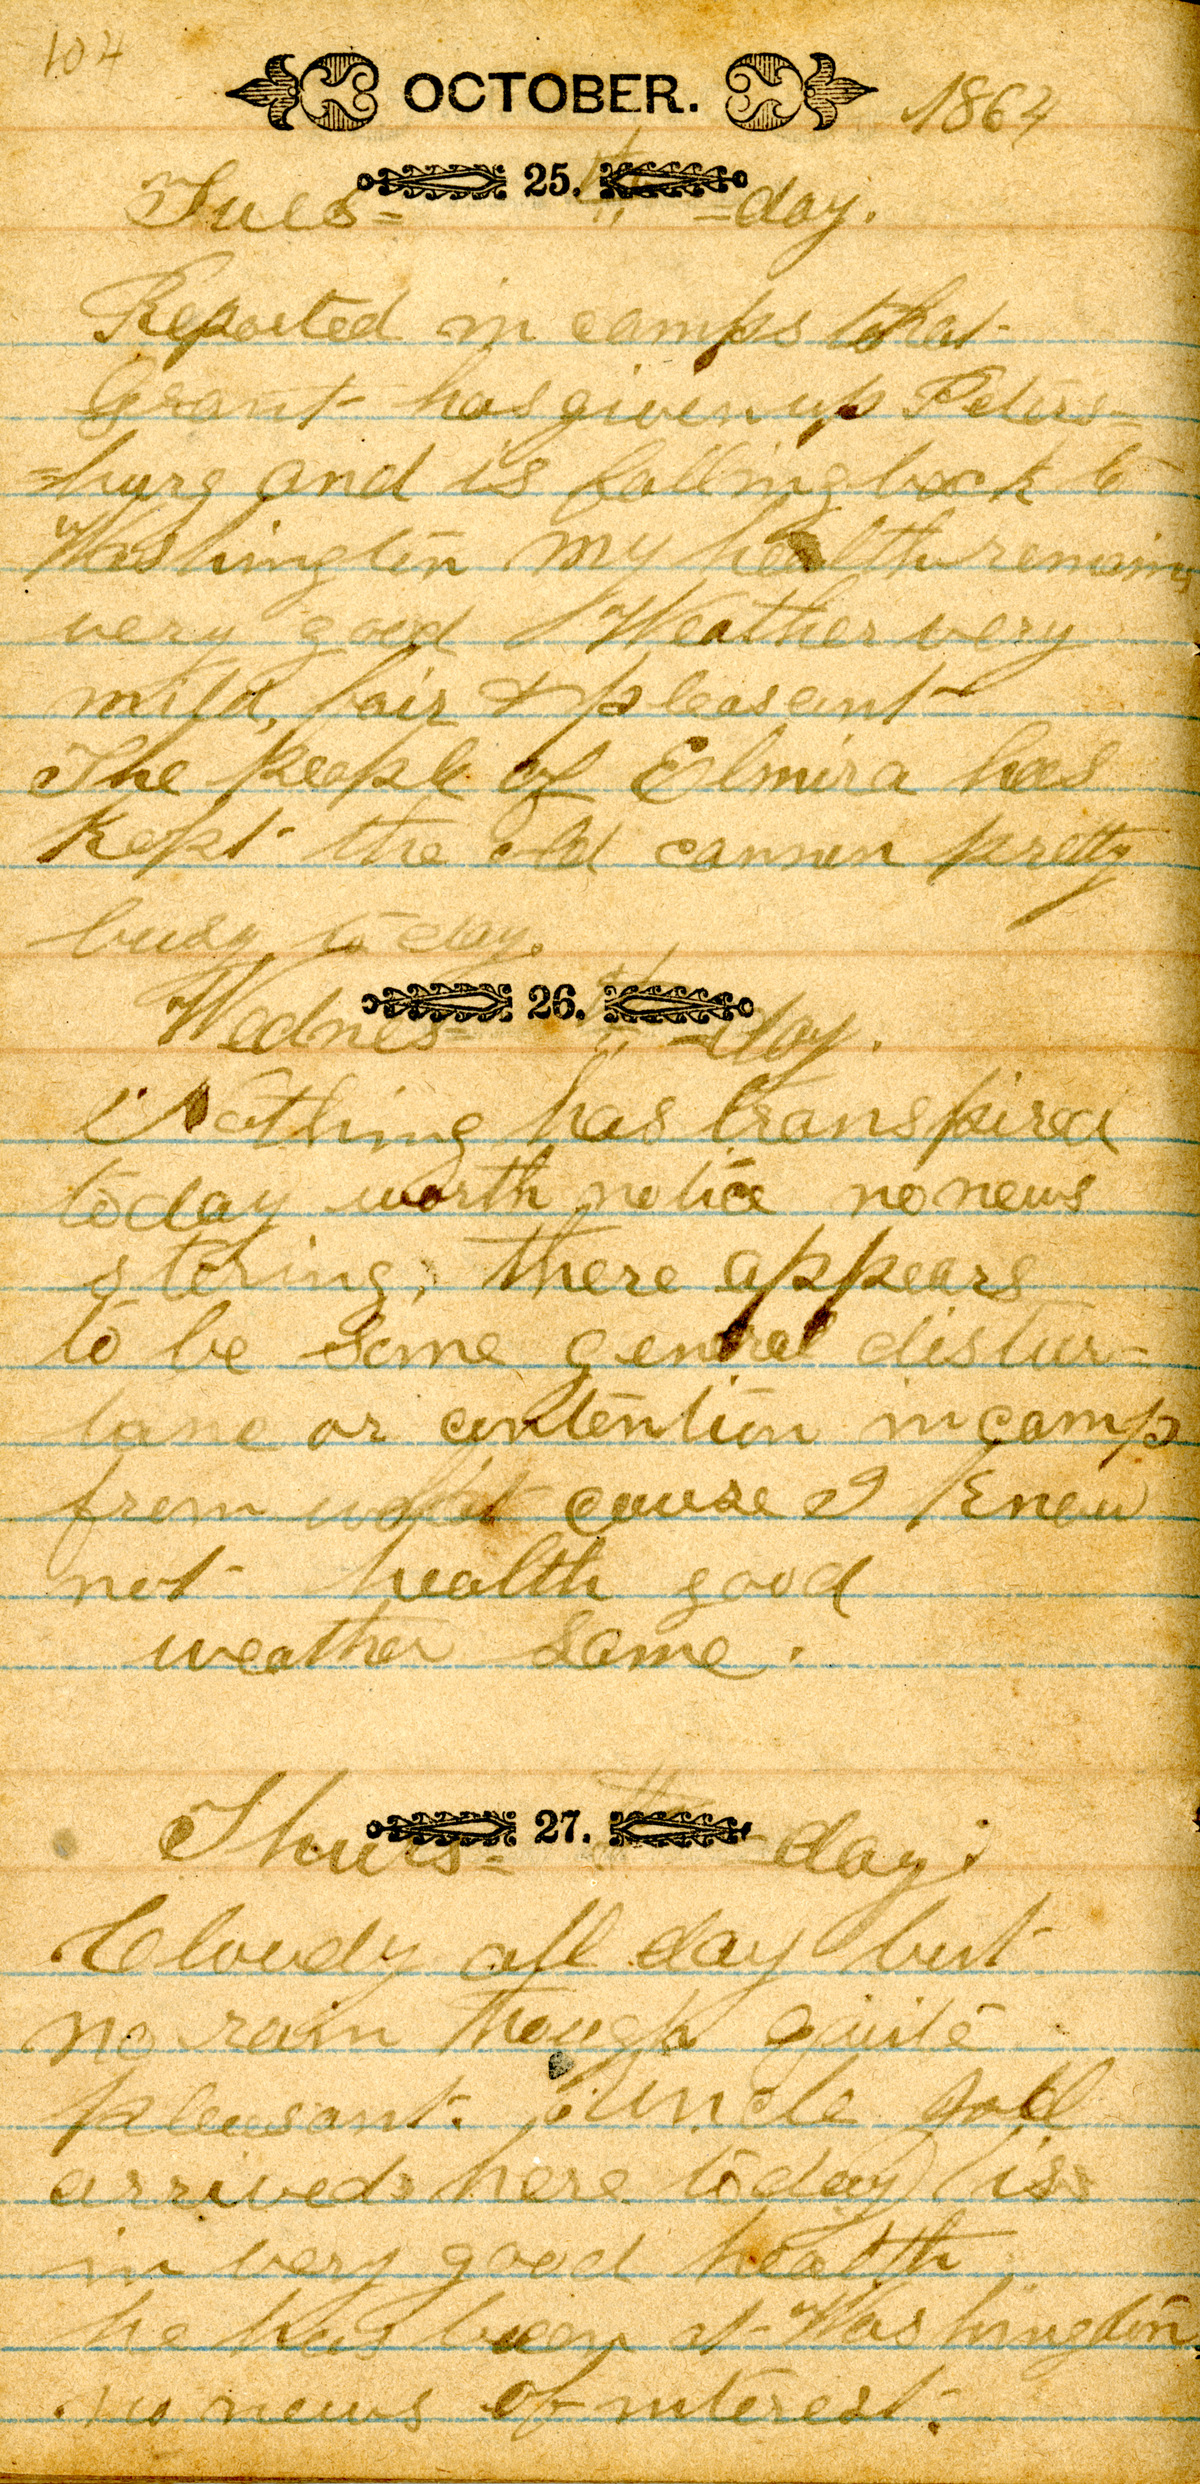 104
OCTOBER. 1864
25.
Tues= th =day.
Reported in camps that
Grant has given up Peters-
=burg and is falling back to
Washington my health remains
very good Weather very
mild, fair & pleasant
The people of Elmira has
kept the old cannon pretty
busy today.
26.
Wednes= th =day.
Nothing has transpired
today worth notice no news
stering, there appears
to be some general distur-
bane or contention in camp
from what cause I know
not health good
weather same.
27.
Thurs= th =day.
Cloudy all day but
no rain though quite
pleasant. Uncle
arrived here today is
in very good health
he has been at Washington.
no news of interest.